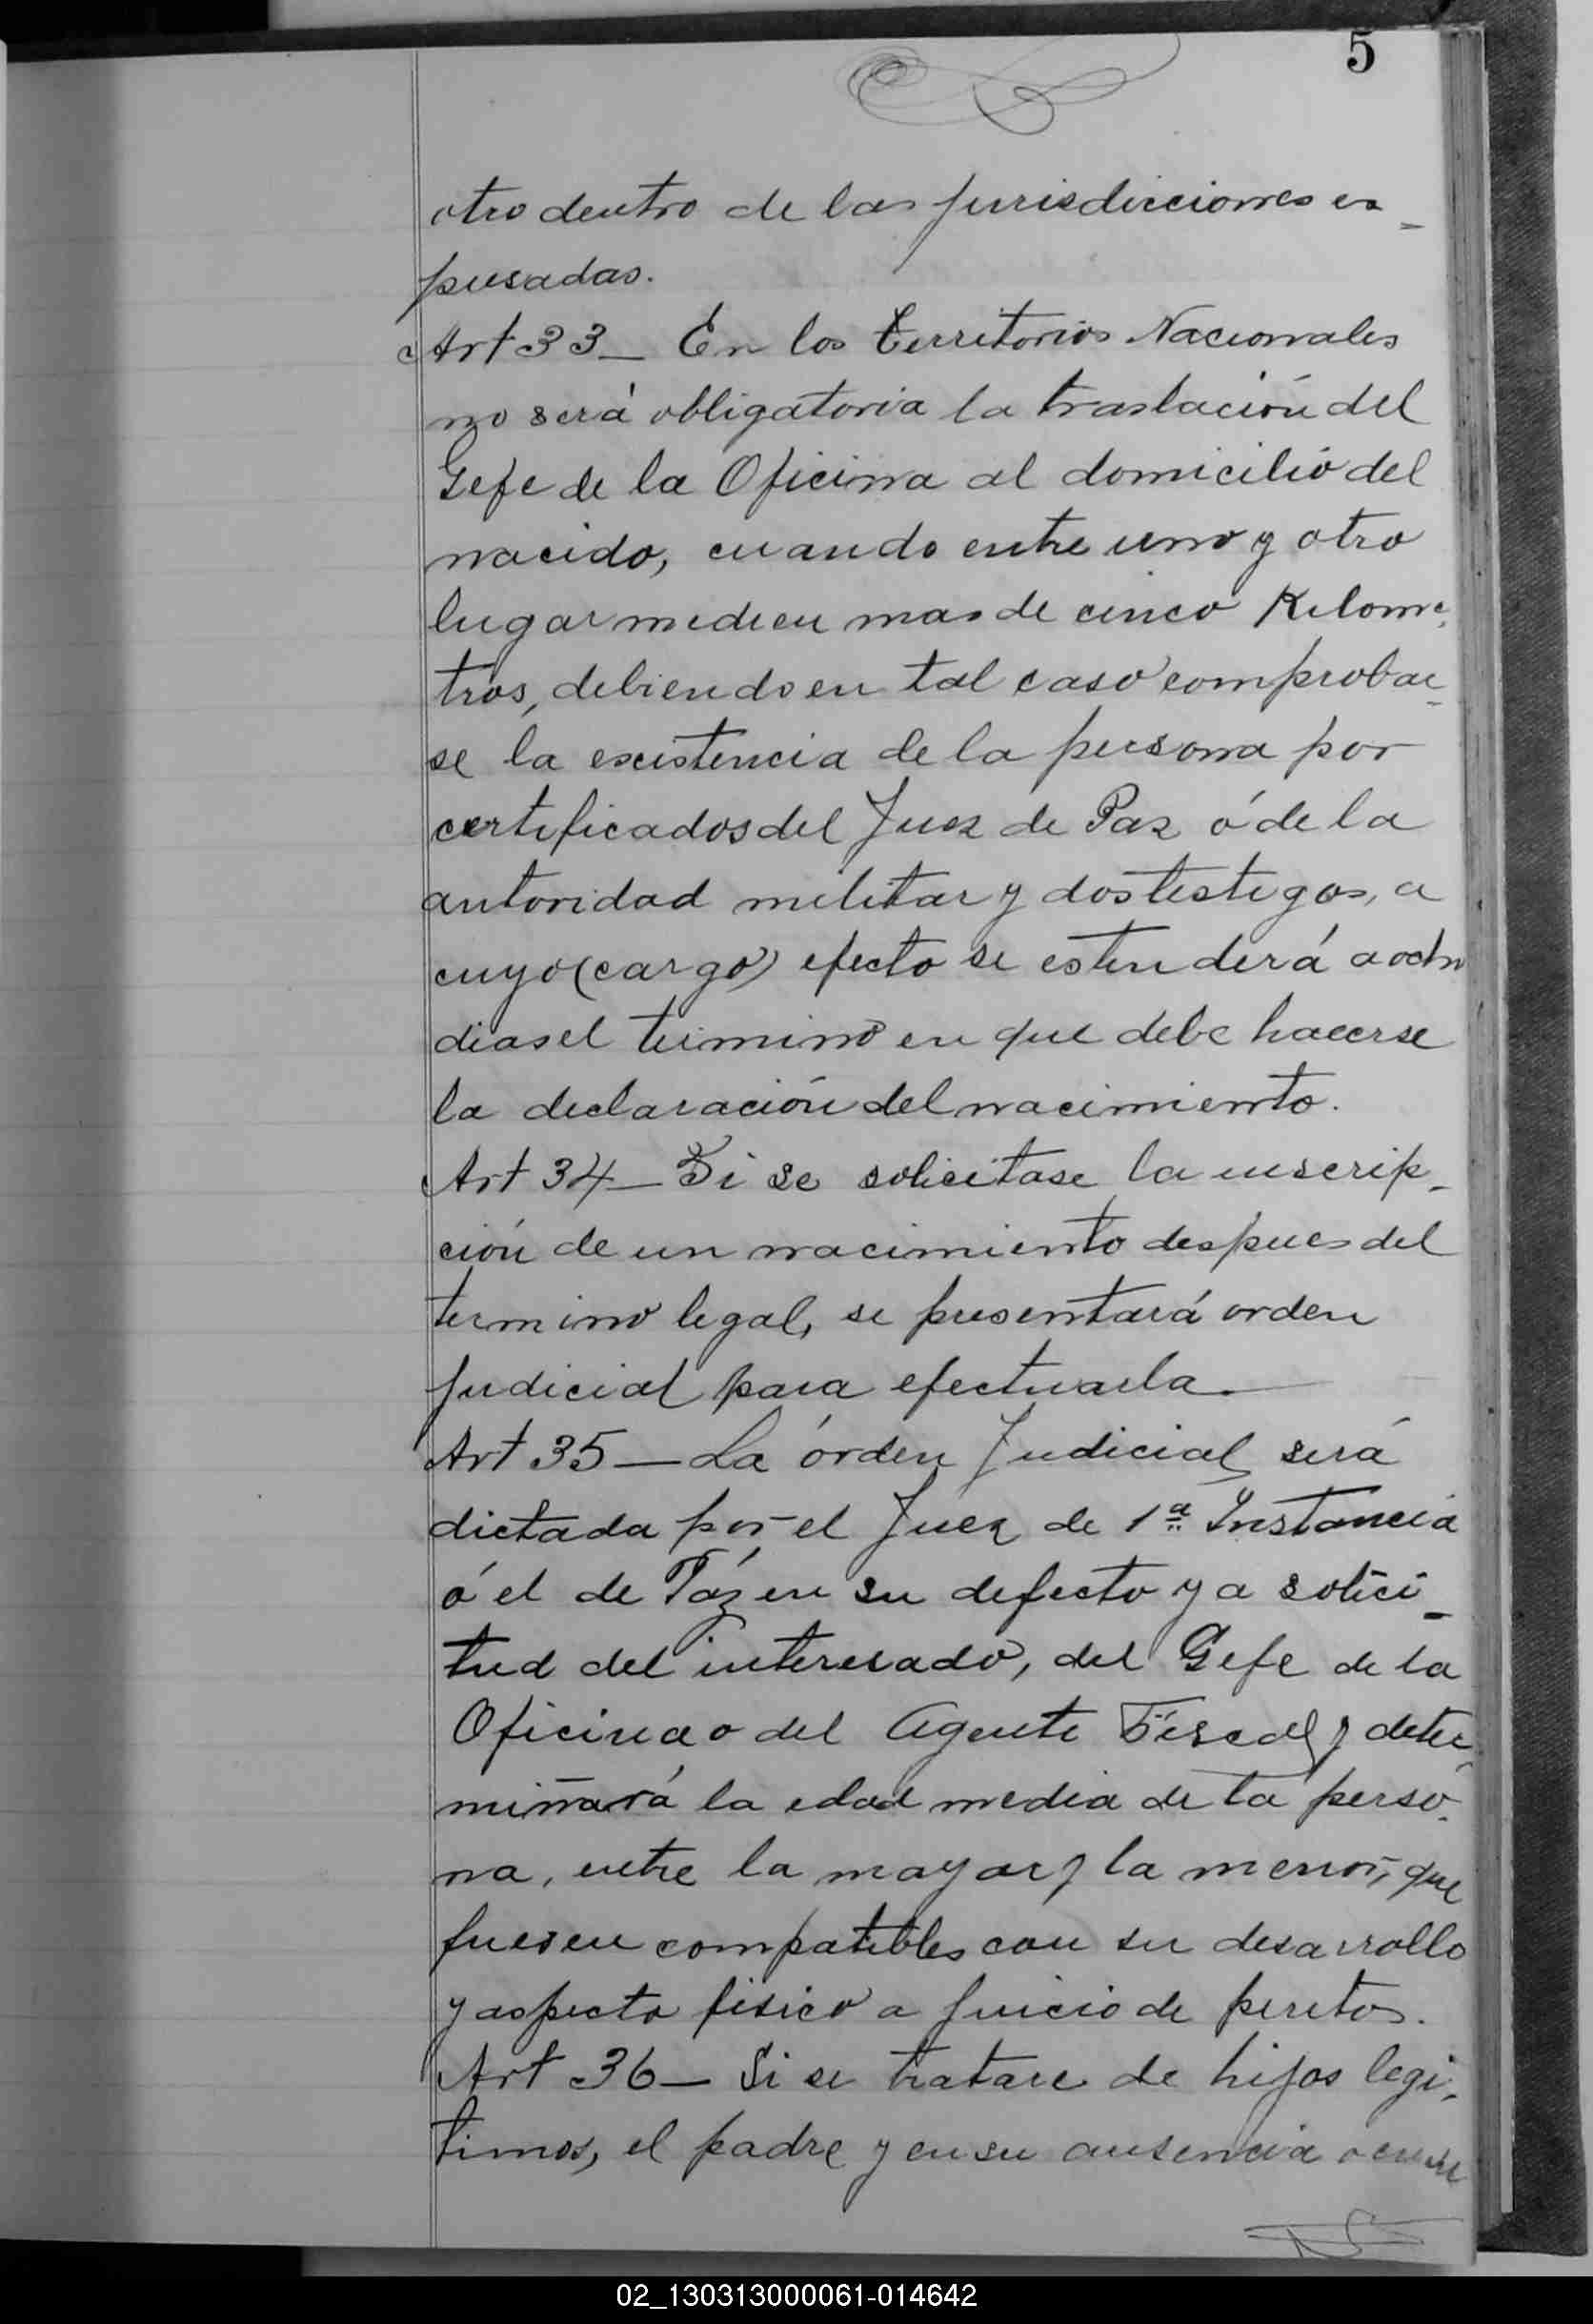 5
otro dentro de las jurisdicciones ex_
presadas.
Art 33_ En los territorios Nacionales
no será obligatoria la traslación del
Gefe de la Oficina al domicilio del
nacido, cuando entre uno y otro
lugar medien mas de cinco Kilome_
tros, debiendo en tal caso comprobar_
se la existencia de la persona por
certificados del Juez de Paz ó de la
autoridad militar y dos testigos, a
cuyo (cargo) efecto se estenderá a ocho
dias el termino en que debe hacerse
la declaración del nacimiento.
Art 34_ Si se solicitase la inscrip_
ción de un nacimiento despues del
termino legal, se presentará orden
judicial para efectuarla.
Art 35_ La órden Judicial será
dictada por el Juez de 1ª Instancia
ó el de Páz en su defecto y a solici_
tud del interesado, del Gefe de la
Oficina o del Agente Fiscal y deter_
minará la edad media de la perso_
na, entre la mayor y la menor, que
fuesen compatibles con su desarrollo
y aspecto fisico a juicio de peritos.
Art 36_ Si se tratare de hijos legi_
timos, el padre y en su ausencia o
02_130313000061-014642